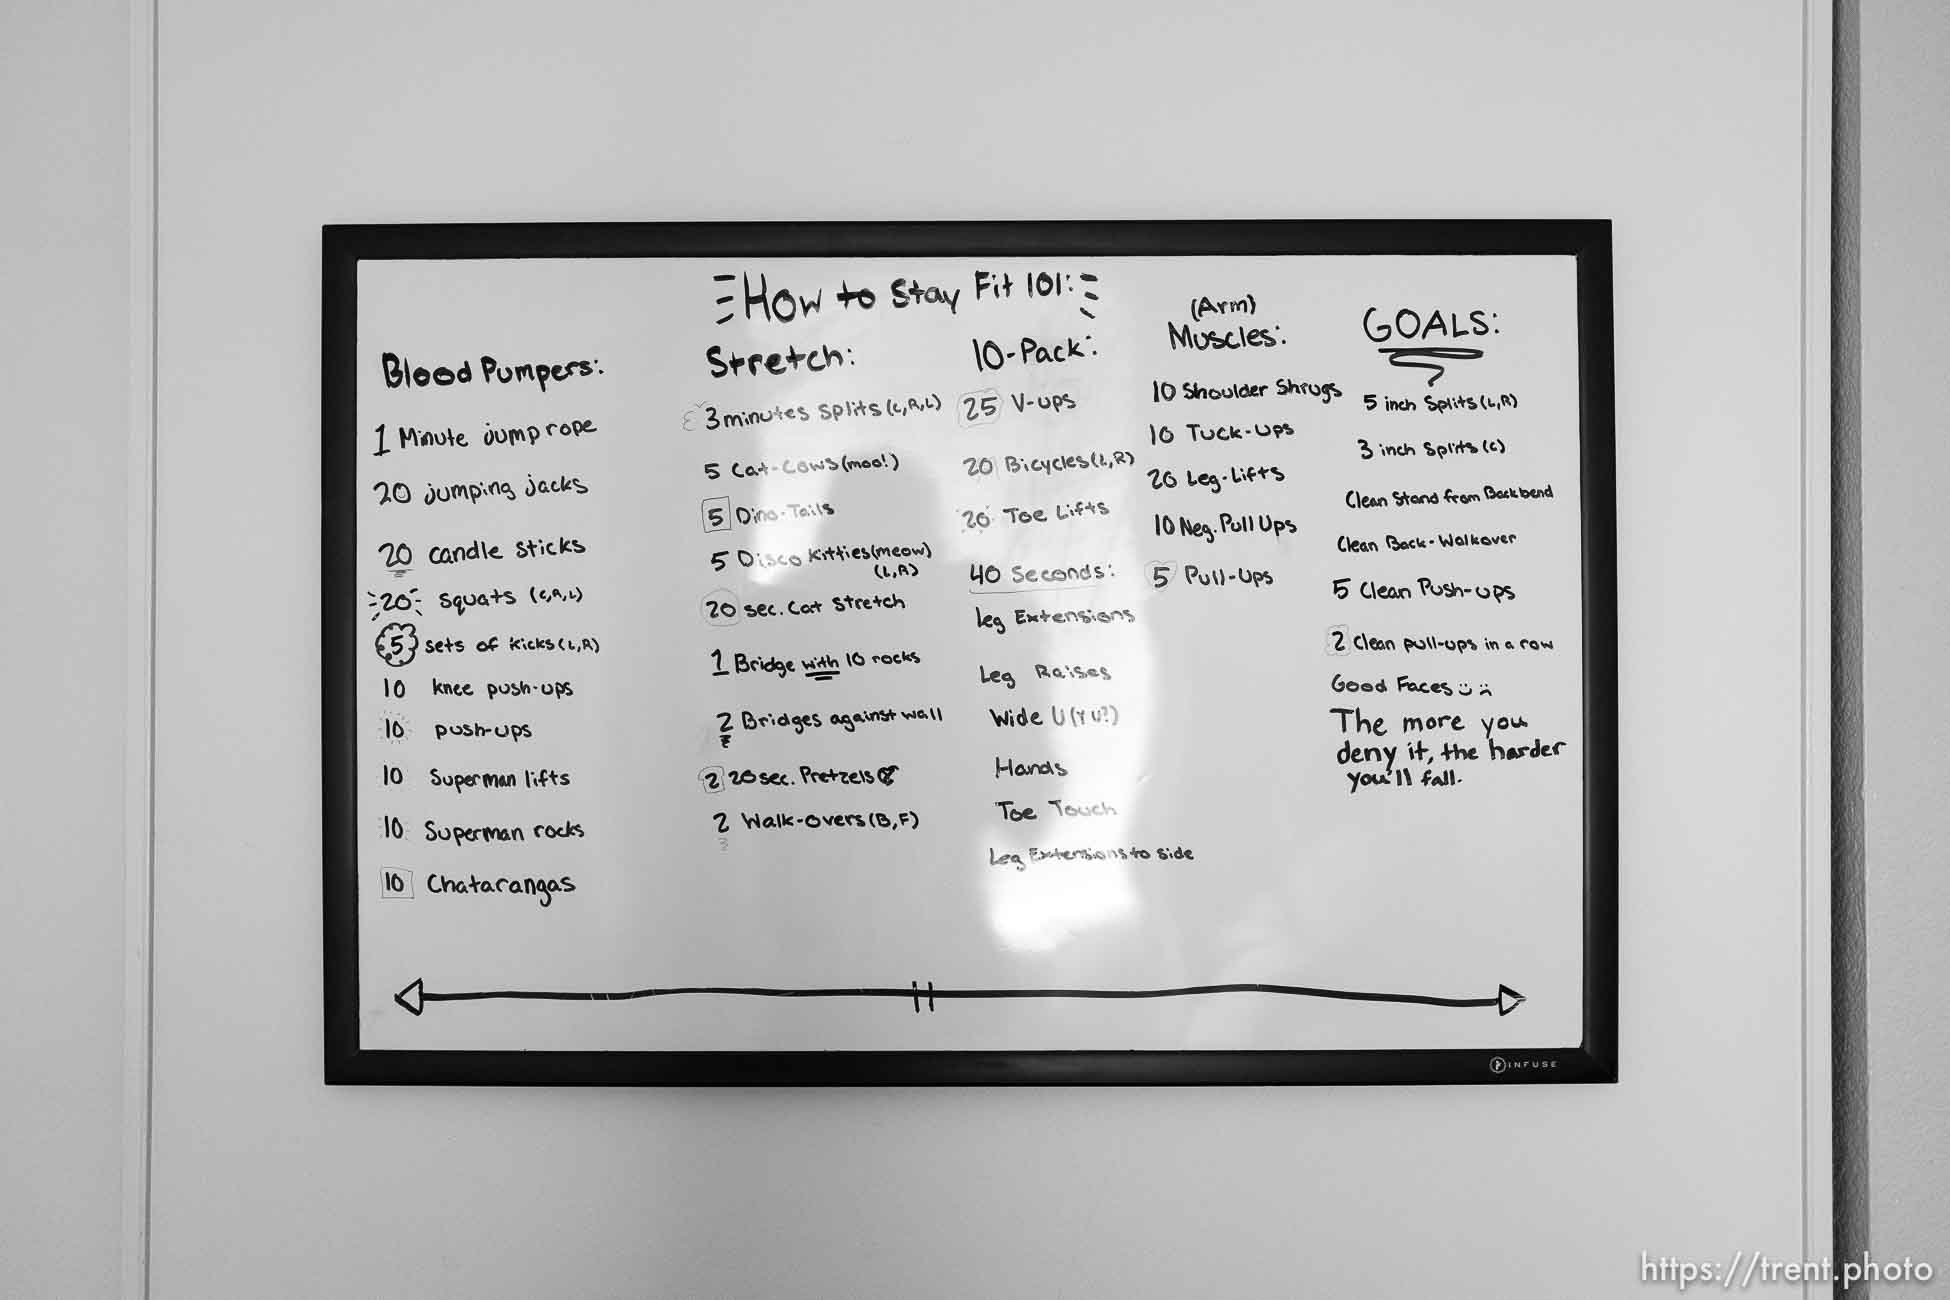 How to Stay Fit 101:
Blood Pumpers:
1 Minute jump rope
20 jumping jacks
20 candle sticks
20 squats (C,R,L)
5 sets of kicks (L,R)
10 knee push-ups
10 push-ups
10 Superman lifts
10 Superman rocks
10 Chatarangas
Stretch:
3 minutes splits (L,R,L)
5 Cat-Cows (moo!)
5 Dino-Tails
5 Disco Kitties (meow)
(L,R)
20 sec. Cat Stretch
1 Bridge with 10 rocks
2 Bridges against wall
2 20 sec. Pretzels
2 Walk-overs (B,F)
3
10-Pack:
25 V-ups
20 Bicycles (L,R)
20 Toe Lifts
40 Seconds:
Leg Extensions
Leg Raises
Wide U (Y U?)
Hands
Toe Touch
Leg Extensions to side
(Arm)
Muscles:
10 Shoulder Shrugs
10 Tuck-Ups
20 Leg-Lifts
10 Neg. Pull Ups
5 Pull-Ups
GOALS:
5 inch Splits (L,R)
3 inch Splits (C)
Clean Stand from Backbend
Clean Back-Walkover
5 Clean Push-ups
2 Clean pull-ups in a row
Good Faces
The more you
deny it, the harder
you'll fall.
INFUSE
https://trent.photo